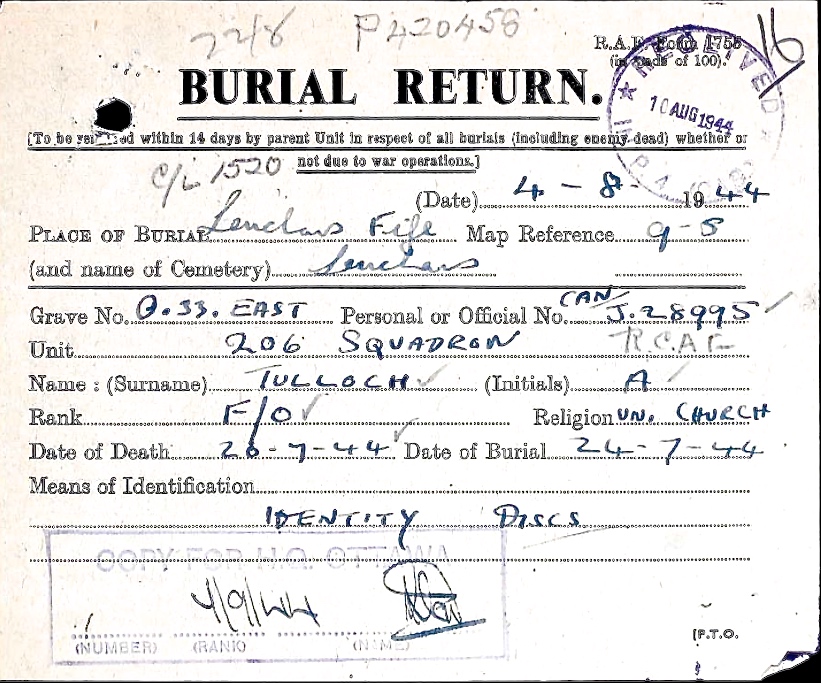 22/8 P420458
R.A.F. Form 1758
(in pads of 100).
16
BURIAL RETURN.
RECEIVED
10 AUG 1944
[To be rendered within 14 days by parent Unit in respect of all burials (including enemy dead) whether or
not due to war operations.]
C/L 1520
(Date) 4 - 8 - 1944
PLACE OF BURIAL Leuchars Fife Map Reference 9-5
(and name of Cemetery) Leuchars
Grave No. O.33. EAST Personal or Official No. CAN/J.28995
Unit 206 SQUADRON R.C.A.F
Name : (Surname) TULLOCH (Initials) A
Rank F/O Religion UN. CHURCH
Date of Death 20-7-44 Date of Burial 24-7-44
Means of Identification
IDENTITY DISCS
COPY FOR H.Q. OTTAWA
4/9/44
(NUMBER) (RANK) (NAME)
[P.T.O.